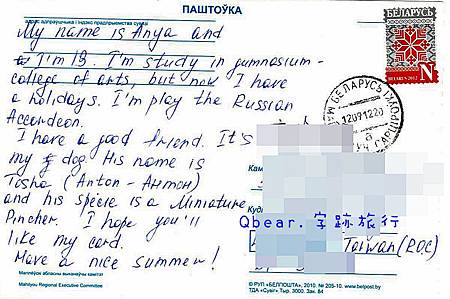 ПАШТОЎКА
адрас адпраўшчыка і індэкс прадпрыемства сувязі
My name is Anya and
I'm 19. I'm study in gumnasium -
college of arts, but now I have
a holidays. I'm play the Russian
Accordeon.
I have a good friend. It's
my dog. His name is
Tosha (Anton - Антон)
and his specie is a Miniature
Pincher. I hope you'll
like my card.
Have a nice summer!
Магілёўскі абласны выканаўчы камітэт
Mahilyou Regional Executive Committee
БЕЛАРУСЬ
BELARUS 2012
N
БЕЛАРУСЬ
Кам
Куды
Qbear.字跡旅行
Taiwan (ROC)
© РУП «БЕЛПОШТА», 2010. № 205-10. www.belpost.by
Зак. 84